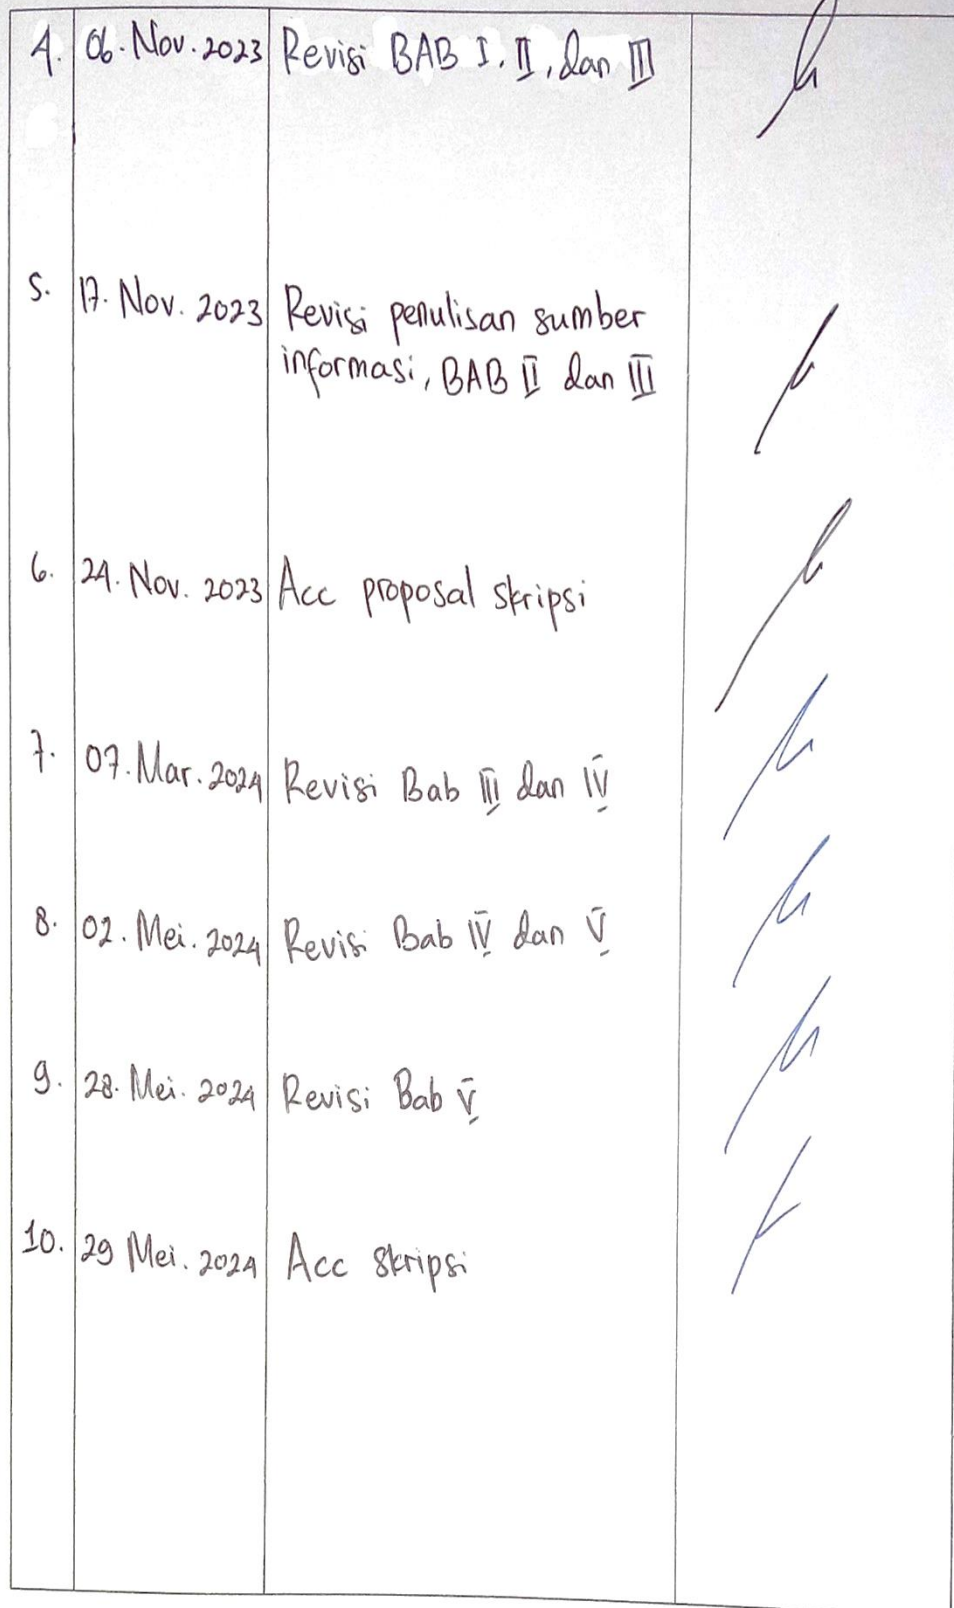 4. 06. Nov. 2023 Revisi BAB I, II, dan III
5. 17. Nov. 2023 Revisi penulisan sumber
informasi, BAB II dan III
6. 24. Nov. 2023 Acc proposal skripsi
7. 07. Mar. 2024 Revisi Bab III dan IV
8. 02. Mei. 2024 Revisi Bab IV dan V
9. 28. Mei. 2024 Revisi Bab V
10. 29 Mei. 2024 Acc Skripsi